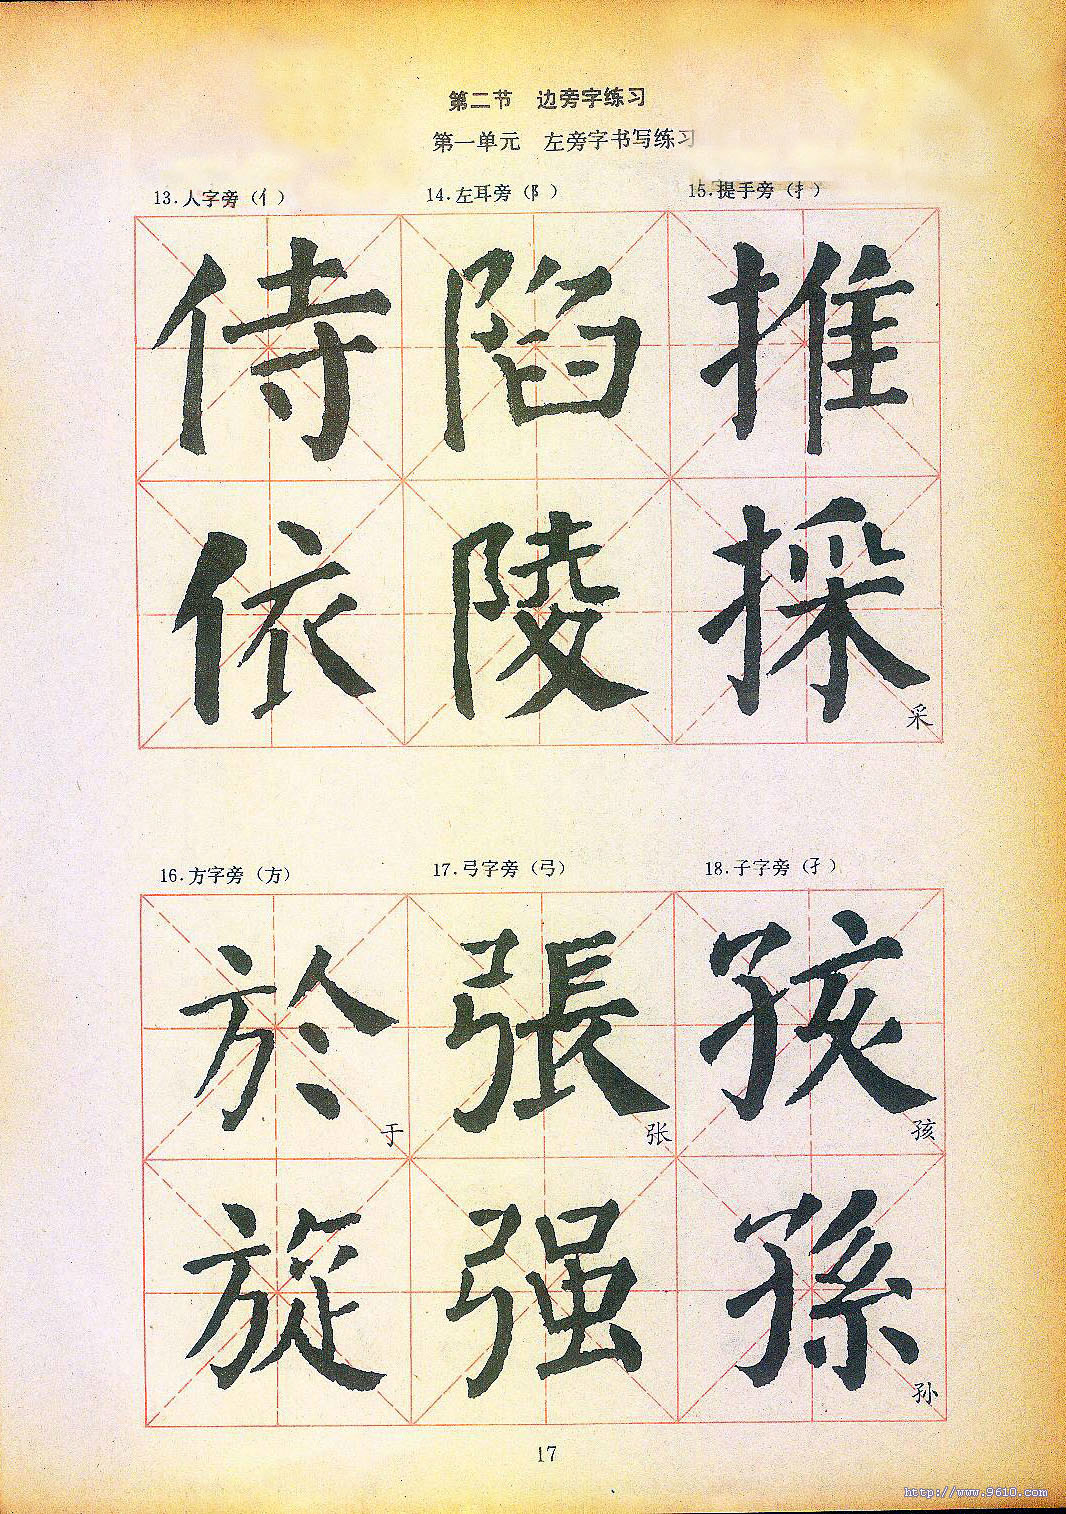 第二节 边旁字练习
第一单元 左旁字书写练习
13.人字旁（亻） 14.左耳旁（阝） 15.提手旁（扌）
侍 陷 推
依 陵 採
采
16.方字旁（方） 17.弓字旁（弓） 18.子字旁（孑）
於 張 孩
于 张 孩
旋 强 孫
孙
17
http://www.9610.com